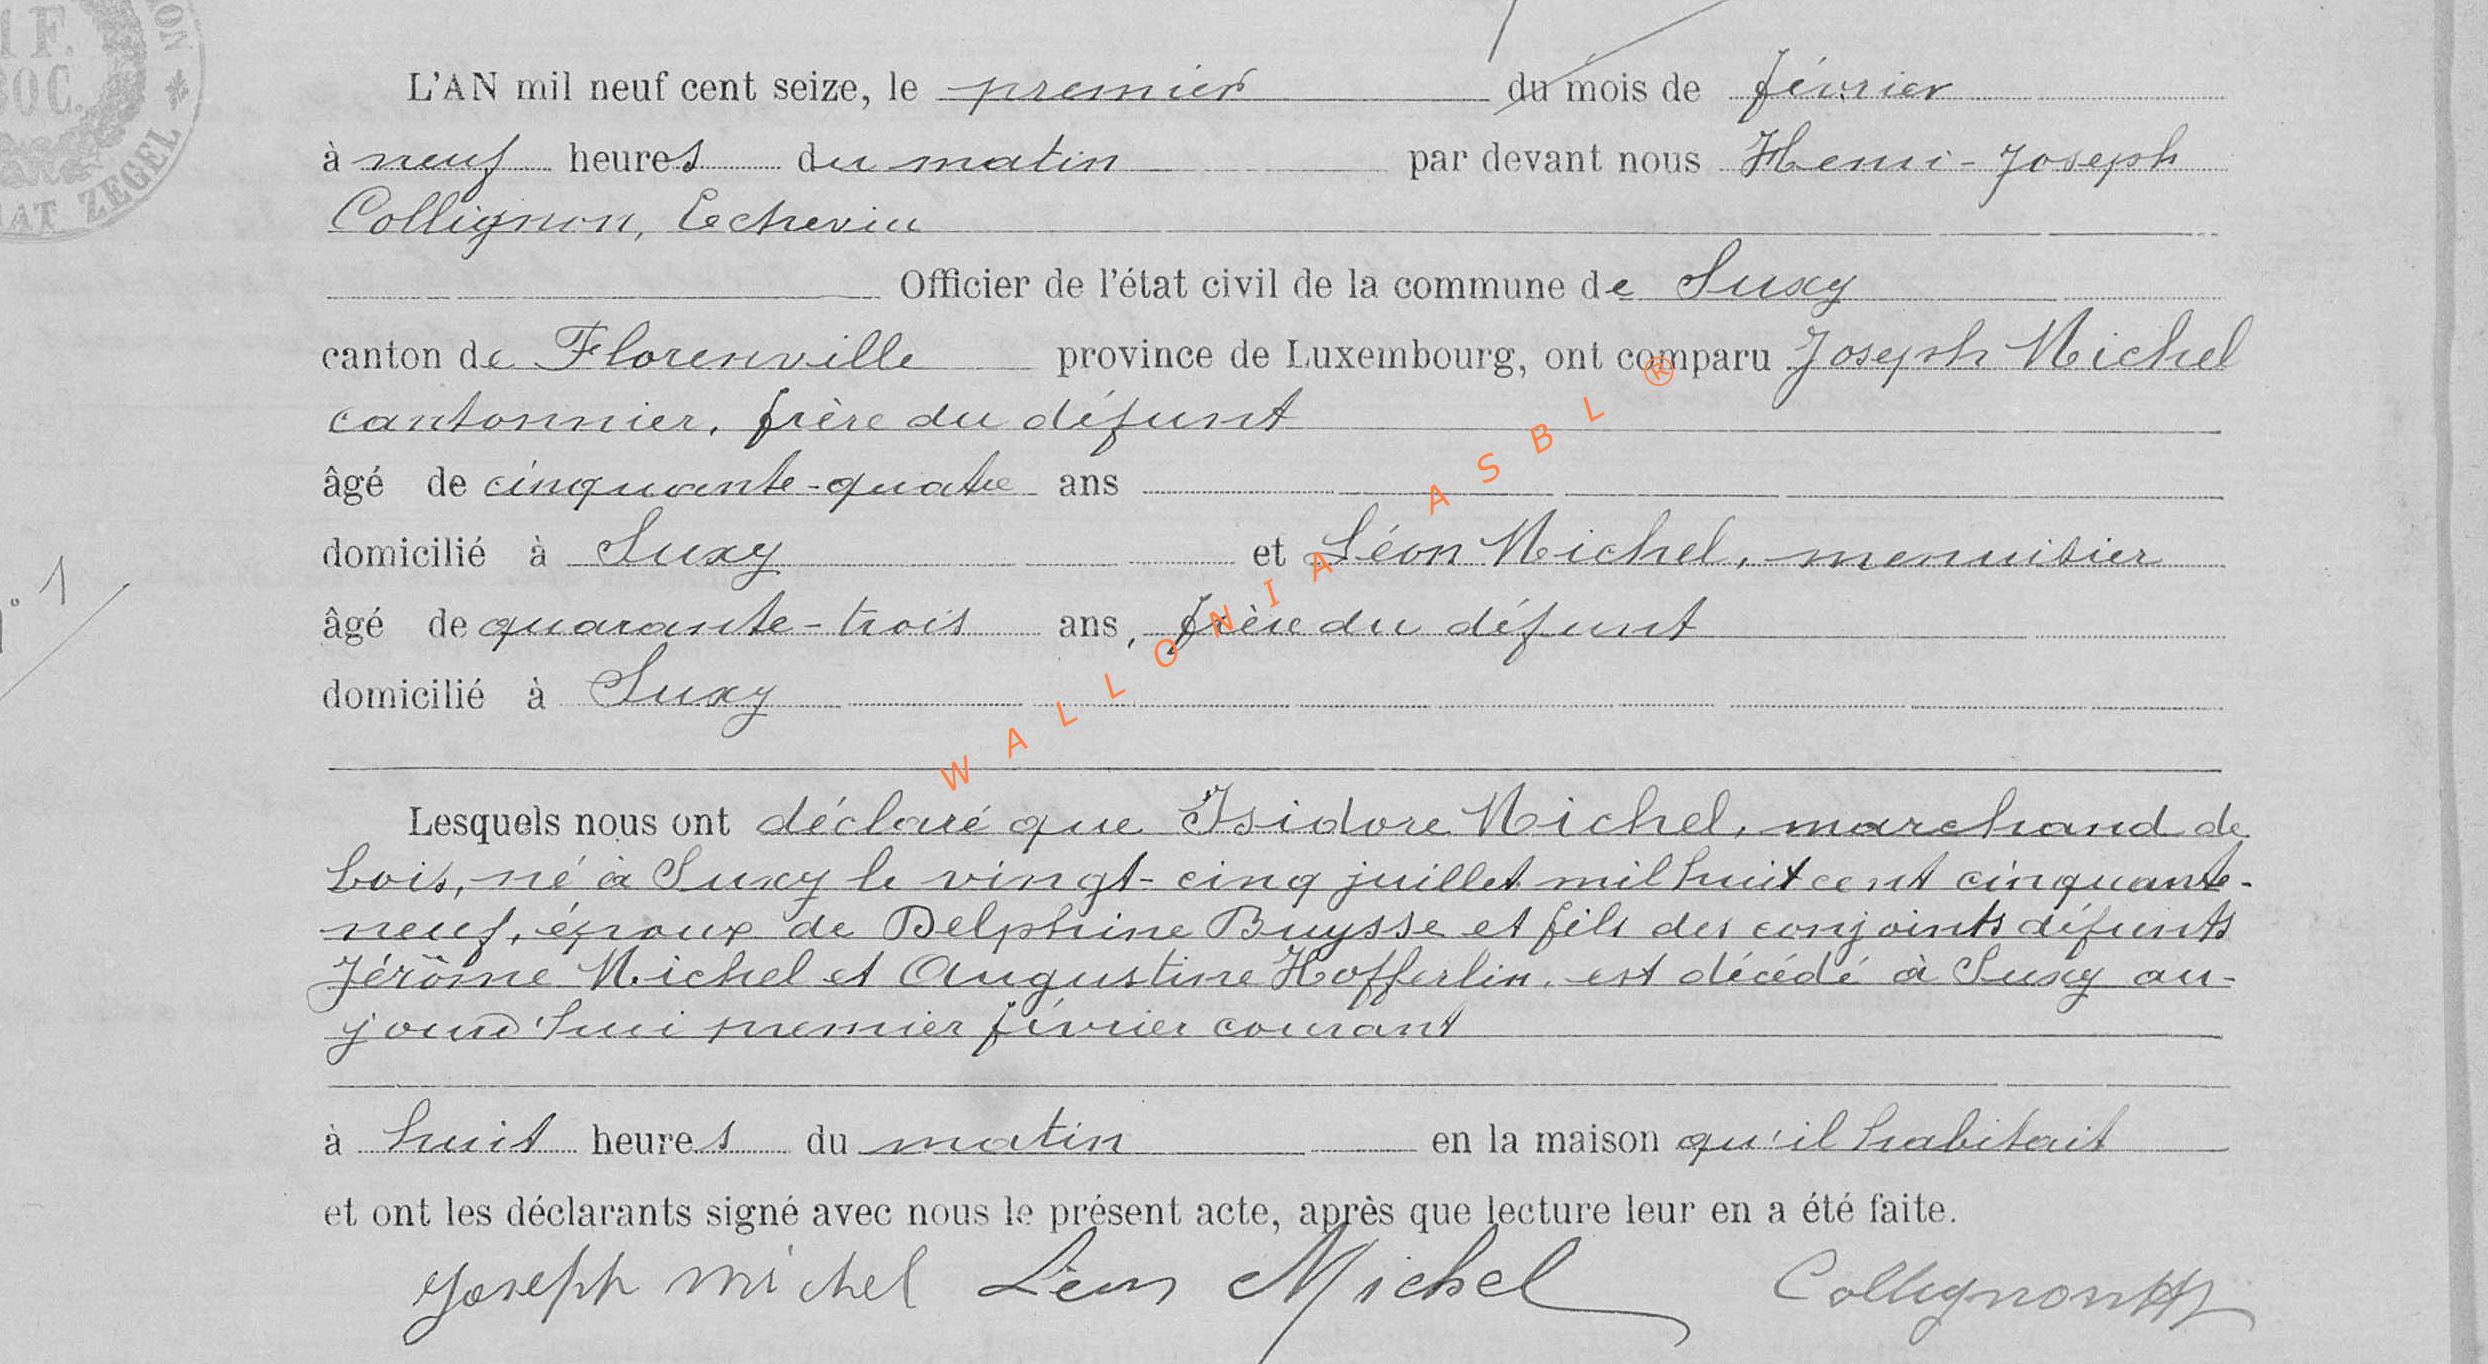 1 F.
BOC.
NOT
* ZEGEL
L'AN mil neuf cent seize, le premier du mois de février
à neuf heures du matin par devant nous Henri-Joseph
Collignon, Echevin
Officier de l'état civil de la commune de Suxy
canton de Florenville province de Luxembourg, ont comparu Joseph Michel
cantonnier, frère du défunt
âgé de cinquante-quatre ans
domicilié à Suxy et Léon Michel, menuisier
âgé de quarante-trois ans, frère du défunt
domicilié à Suxy
N° 1
WALLONIA ASBL ®
Lesquels nous ont déclaré que Isidore Michel, marchand de
bois, né à Suxy le vingt-cinq juillet mil huit cent cinquante-
neuf, époux de Delphine Buysse et fils des conjoints défunts
Jérôme Michel et Augustine Hofferlin, est décédé à Suxy au-
jourd'hui premier février courant
à huit heures du matin en la maison qu'il habitait
et ont les déclarants signé avec nous le présent acte, après que lecture leur en a été faite.
Joseph Michel Léon Michel Collignon